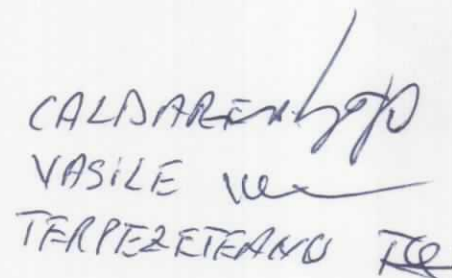 CALDAREA
VASILE
TERPEZETEANU